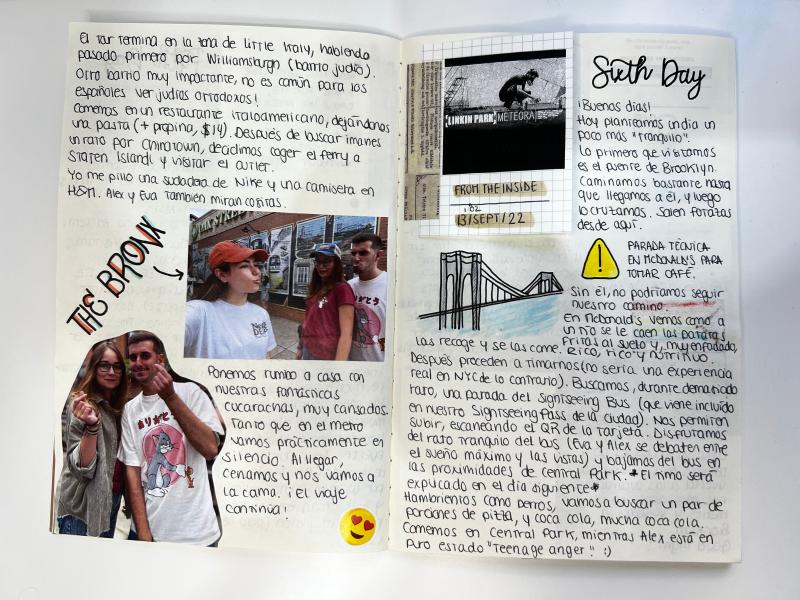 El tour termina en la zona de Little Italy, habiendo
pasado primero por Williamsburgh (barrio judío).
Otro barrio muy impactante, no es común para los
españoles ver judíos ortodoxos!
Comemos en un restaurante italoamericano, dejándonos
una pasta (+ propina, $14). Después de buscar imanes
un rato por Chinatown, decidimos coger el ferry a
Staten Island y visitar el outlet.
Yo me pillo una sudadera de Nike y una camiseta en
H&M. Alex y Eva también miran cositas.
THE BRONX
Ponemos rumbo a casa con
nuestras fantásticas
cucarachas, muy cansados.
Tanto que en el metro
vamos prácticamente en
silencio. Al llegar,
cenamos y nos vamos a
la cama. ¡El viaje
continúa!
LINKIN PARK METEORA
FROM THE INSIDE
13/SEPT/22
Sixth Day
¡Buenos días!
Hoy planteamos un día un
poco más "tranquilo".
Lo primero que visitamos
es el puente de Brooklyn.
Caminamos bastante hasta
que llegamos a él, y luego
lo cruzamos. Salen fotazas
desde aquí.
PARADA TÉCNICA
EN MCDONALD'S PARA
TOMAR CAFÉ.
Sin él, no podríamos seguir
nuestro camino.
En McDonald's vemos como a
un tío se le caen las patatas
fritas al suelo y, muy enfadado,
las recoge y se las come. Rico, rico y nutritivo.
Después proceden a timarnos (no sería una experiencia
real en NYC de lo contrario). Buscamos, durante demasiado
rato, una parada del Sightseeing Bus (que viene incluido
en nuestro Sightseeing Pass de la ciudad). Nos permiten
subir, escaneando el QR de la tarjeta. Disfrutamos
del rato tranquilo del bus (Eva y Alex se debaten entre
el sueño máximo y las vistas) y bajamos del bus en
las proximidades de Central Park. *El timo será
explicado en el día siguiente*
Hambrientos como perros, vamos a buscar un par de
porciones de pizza, y coca cola, mucha coca cola.
Comemos en Central Park, mientras Alex está en
puro estado "Teenage anger" :)